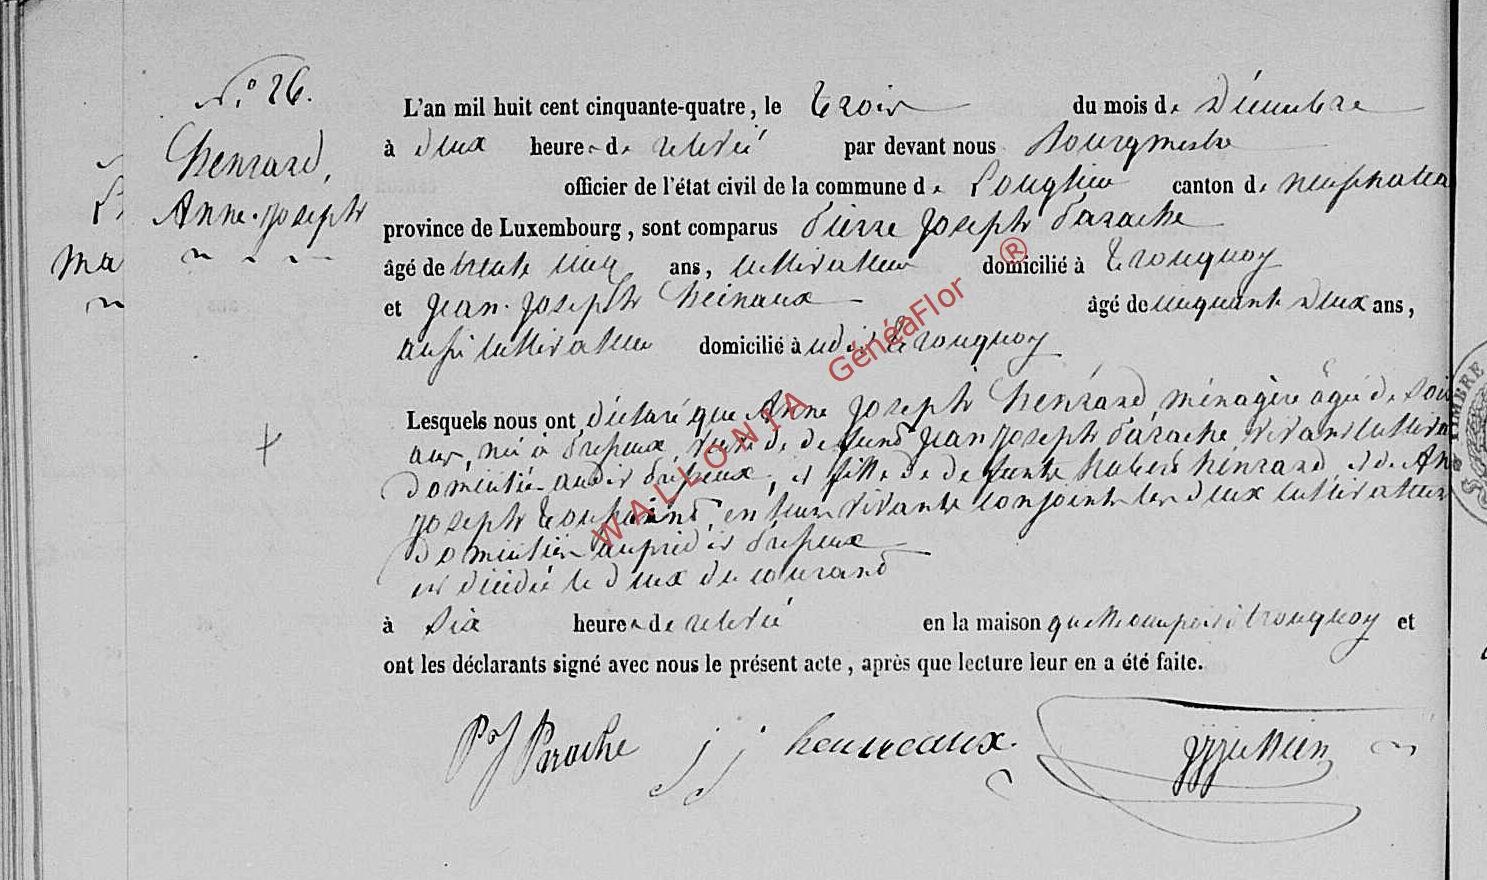 N.° 26.
henrard,
Anne-joseph
ma
L'an mil huit cent cinquante-quatre, le trois du mois de Décembre
à deux heures de relevée par devant nous Bourgmestre
officier de l'état civil de la commune de Longlier canton de neufchatea
province de Luxembourg, sont comparus Pierre joseph Parache
âgé de trente cinq ans, cultivateur domicilié à tronquoy
et jean-joseph heinaux âgé de cinquante deux ans,
aussi cultivateur domicilié à udit tronquoy
Lesquels nous ont déclaré que Anne joseph henrard, ménagère âgée de soi
ans, née à Respeux, veuve de defunt jean joseph Parache vivant cultiva
domicilié audit Respeux, et fille de defunts hubert henrard et de An
joseph en leur vivants conjoints les deux cultivateurs
domiciliés audit Respeux
est décédée le deux du courand
à six heures de relevée en la maison quelle occupait à tronquoy et
ont les déclarants signé avec nous le présent acte, après que lecture leur en a été faite.
P J Parache j j heinneaux.
WALLONIA GénéaFlor ®
TIMBRE